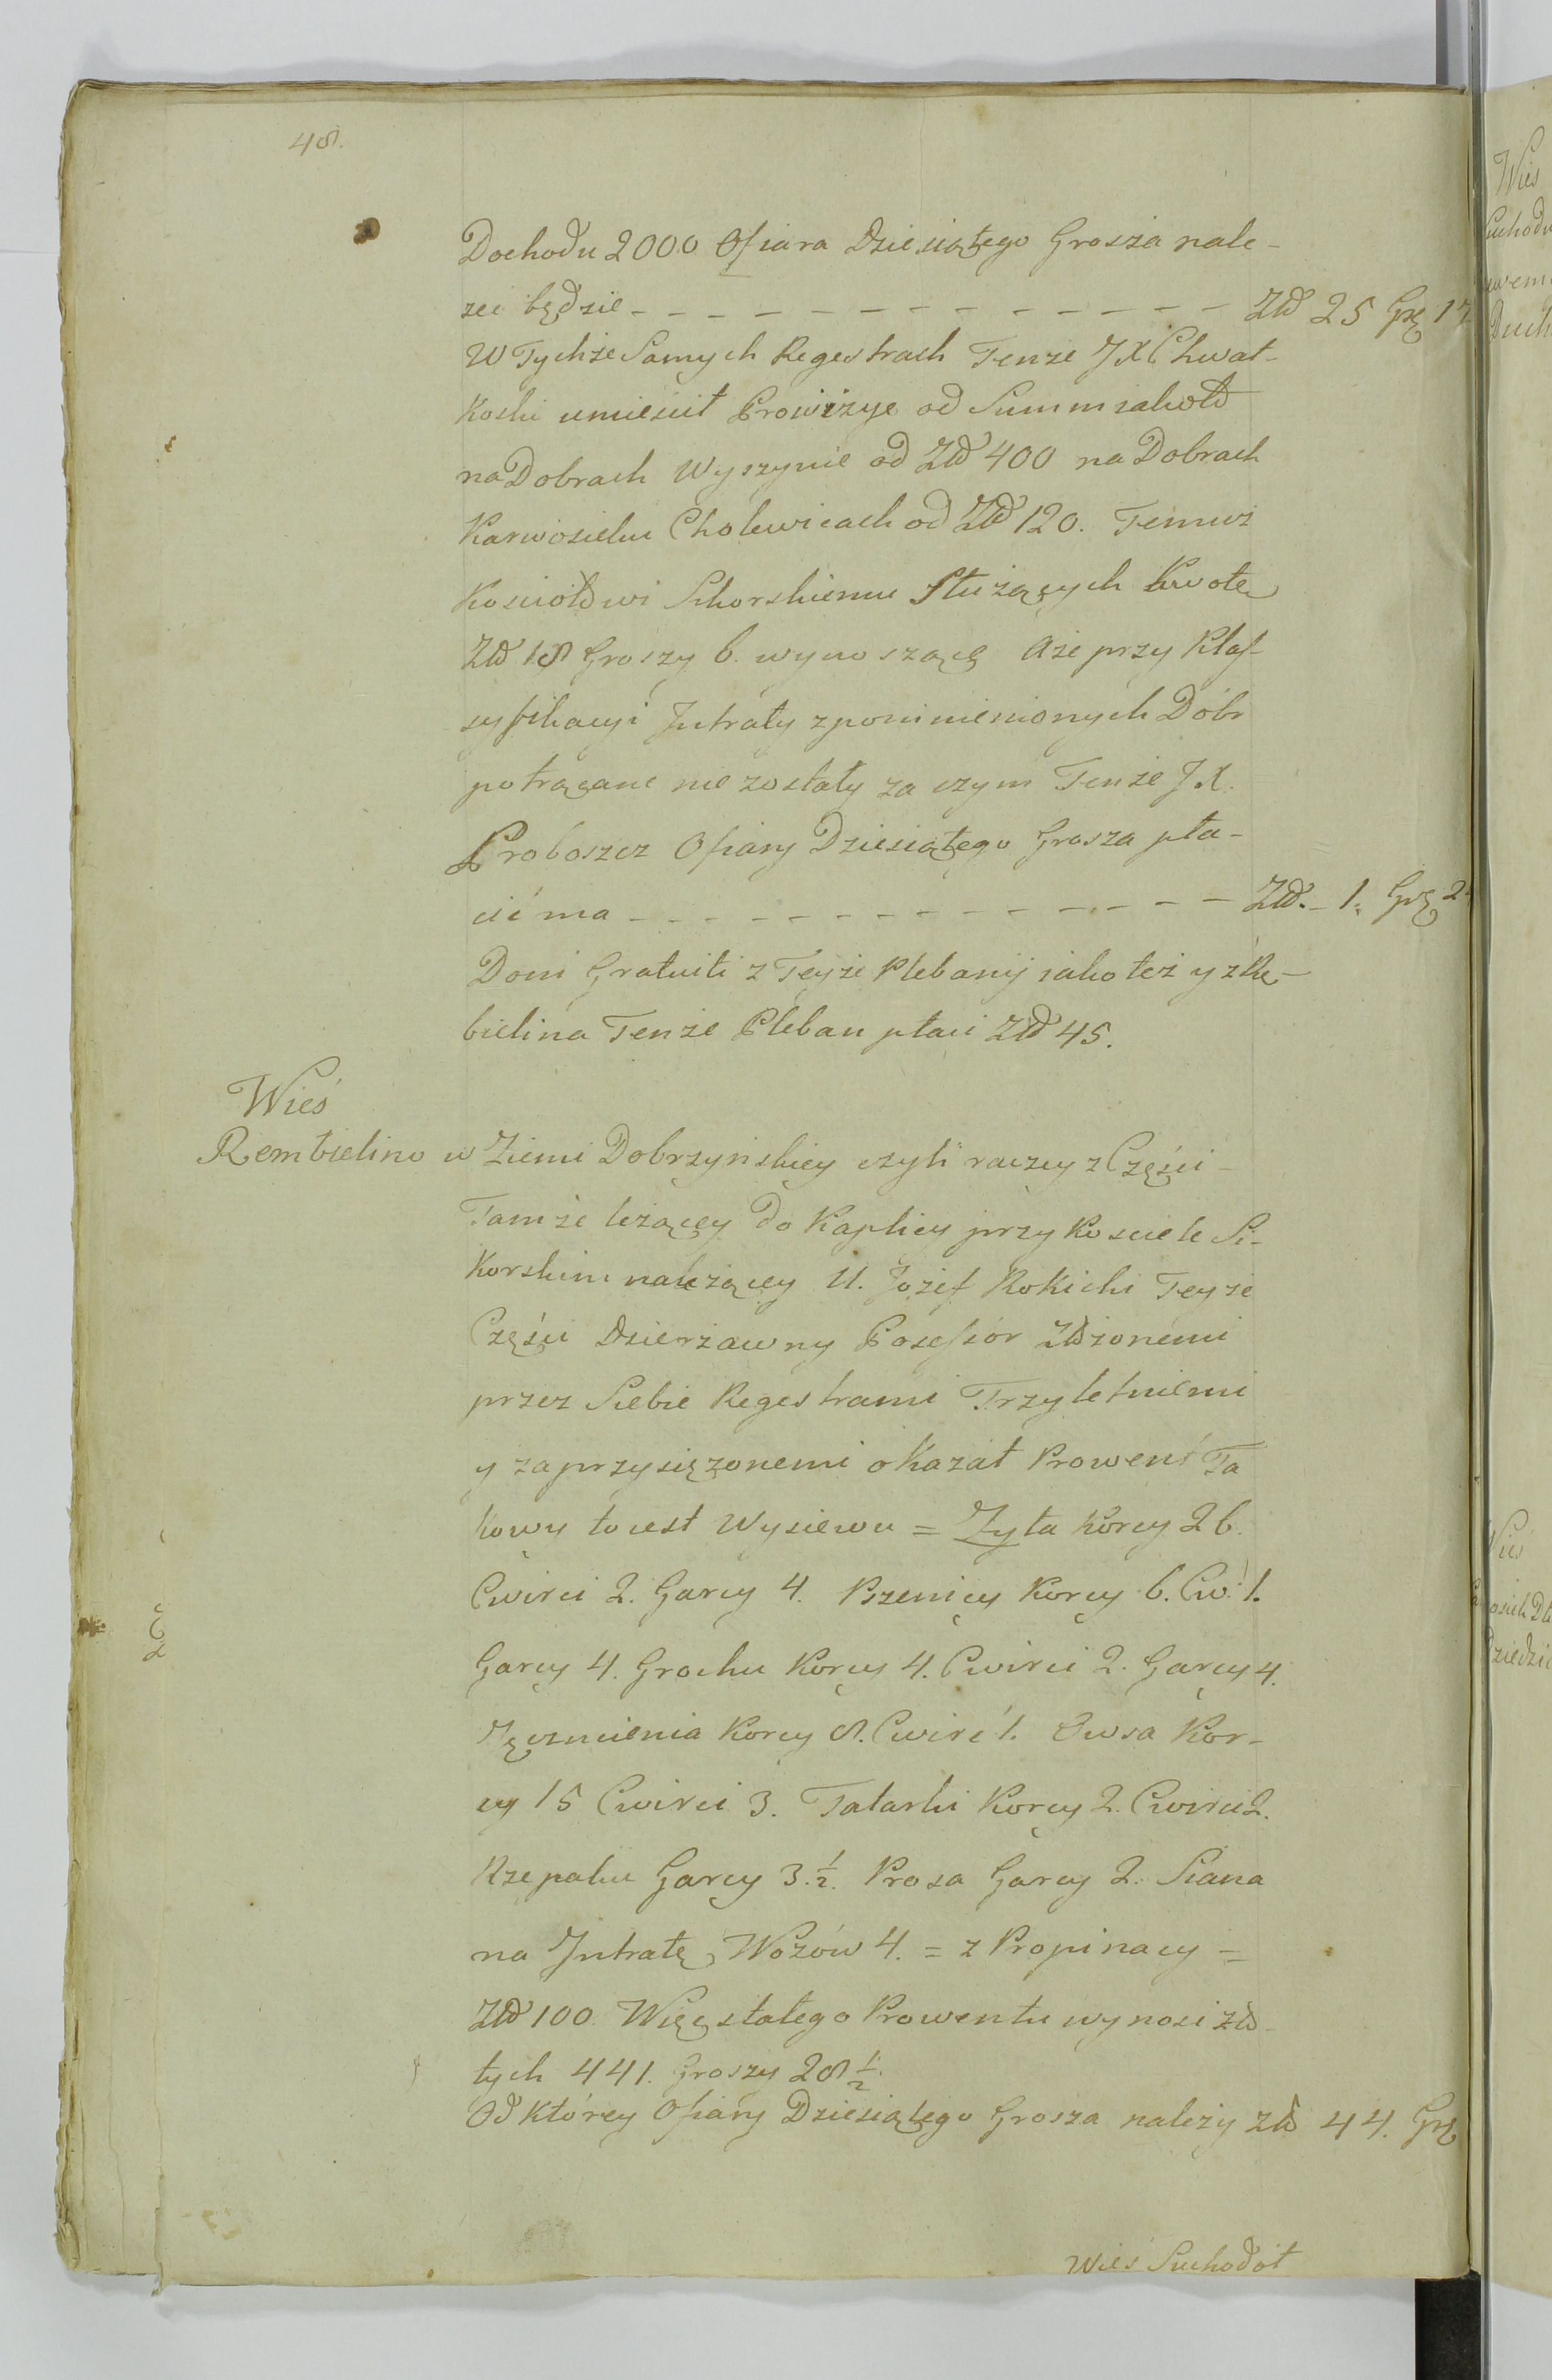 48.
Dochodu 2000 Ofiara Dziesiątego Grosza nale-
zei będzie - - - - - - - - - - - - Złł 25 Grz 17
W Tychże Samych Regestrach Tenże JX Chwał-
koski umieścił Prowizye od Summ iakoto
na Dobrach Wyszynie od Złł 400 na Dobrach
Karwosieku Cholewicach od Złł 120. Temuż
Kosciołowi Sikorskiemu Służących Kwotę
Złł 18 Groszy 6. wynoszącą Aże przy Klas-
syfikacyi Jntraty zpomimienionych Dobr
potrącane nie zostały za czym Tenże JX.
Proboszcz Ofiary Dziesiątego Grosza pła-
cić ma - - - - - - - - - - - - Złł. - 1. Grz 2
Doni Gratuiti z Teyże Plebanij iako też y z Rę-
bielina Tenże Pleban płaci Złł 45.
Wieś
Rembielino w Ziemi Dobrzyńskiey czyli raczey z Części -
Tamże leżącey do Kaplicy przy Kosciele Si-
korskim należącey U. Jozef Rokicki Teyże
Części Dzierżawny Possessor Złożonemi
przez Siebie Regestrami Trzyletniemi
y zaprzysiężonemi okazał Prowent Ta
kowy to iest Wysiewu = Zyta Korcy 26.
Cwierci 2. Garcy 4. Pszenicy Korcy 6. Cw: 1.
Garcy 4. Grochu Korcy 4. Cwierci 2. Garcy 4.
Jęczmienia Korcy 8. Cwierć 1. Owsa Kor-
cy 15 Cwierci 3. Tatarki Korcy 2. Cwierci 2.
Rzepaku Garcy 3. ½. Prosa Garcy 2. Siana
na Jntratę Wozów 4. = z Propinacy =
Złł 100. Więc stałego Prowentu wynosi Zło-
tych 441. Groszy 28 ½.
Od Którey Ofiary Dziesiątego Grosza należy Złł 44. Grz
Wieś Suchodół